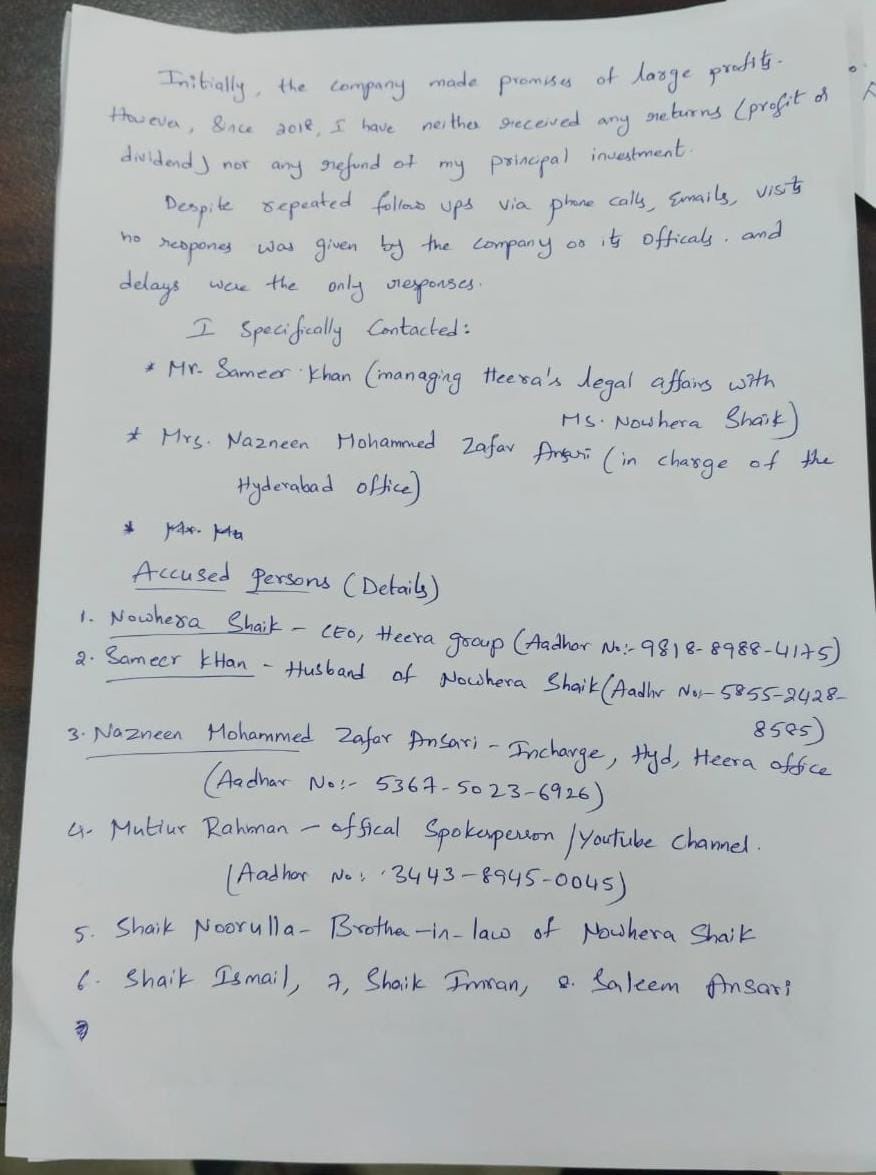 Initially, the company made promises of large profits.
However, Since 2018, I have neither received any returns (profit or
dividend) nor any refund of my principal investment.
Despite repeated follow ups via phone calls, Emails, visits
no respones was given by the company or its officals. and
delays were the only responses.
I Specifically Contacted:
* Mr. Sameer Khan (managing Heera's legal affairs with
Ms. Nowhera Shaik)
* Mrs. Nazneen Mohammed Zafar Ansari (in charge of the
Hyderabad office)
*
Accused Persons (Details)
1. Nowhera Shaik - CEO, Heera group (Aadhar No:- 9818-8988-4175)
2. Sameer KHan - Husband of Nowhera Shaik (Aadhr No:- 5855-2428-
8585)
3. Nazneen Mohammed Zafar Ansari - Incharge, Hyd, Heera office
(Aadhar No:- 5367-5023-6926)
4. Mutiur Rahman - offical Spokesperson / Youtube Channel.
(Aadhar No: 3443-8945-0045)
5. Shaik Noorulla - Brother-in-law of Nowhera Shaik
6. Shaik Ismail, 7, Shaik Imran, 8. Saleem Ansari